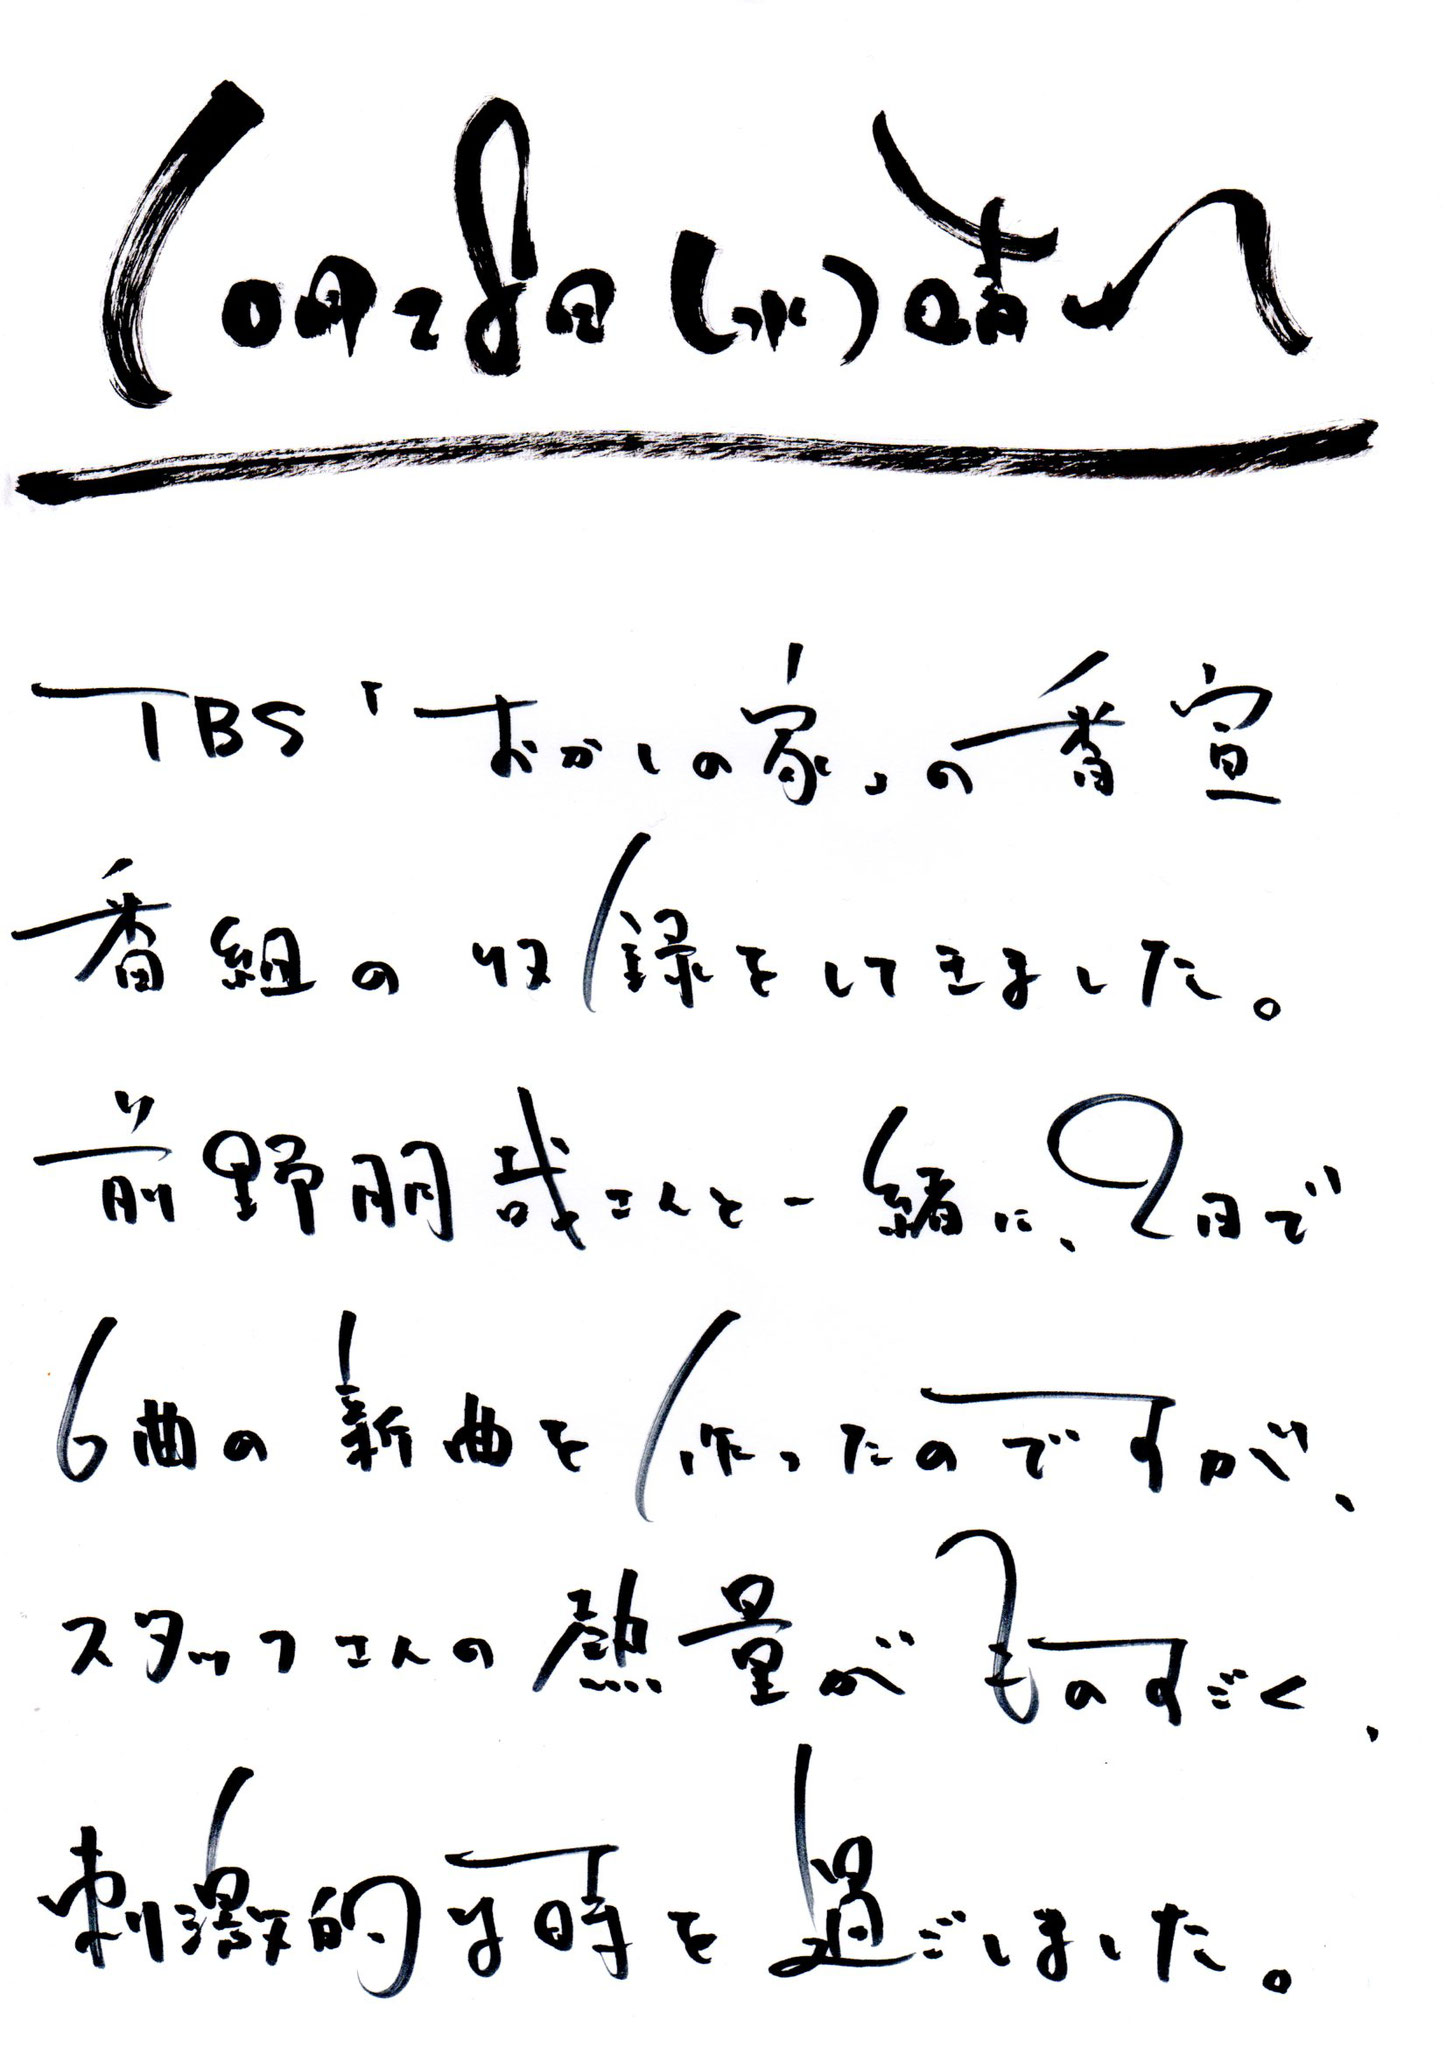 10月28日(水)晴れ
TBS「おかしの家」の番宣
番組の収録をしてきました。
前野朋哉さんと一緒に、2日で
6曲の新曲を作ったのですが、
スタッフさんの熱量がものすごく、
刺激的な時を過ごしました。